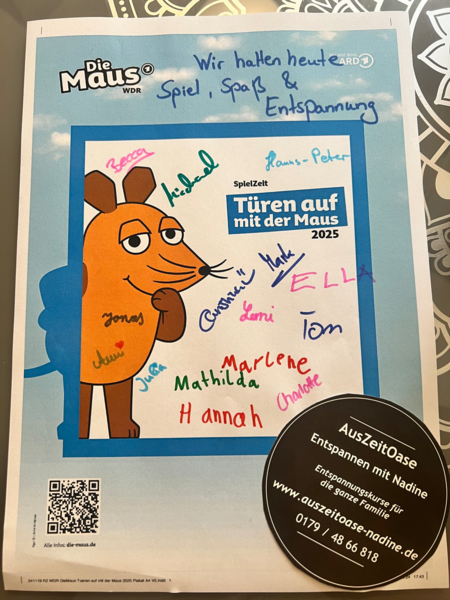 Die
Maus
WDR
ARD
Wir hatten heute
Spiel, Spaß &
Entspannung
Becca
Michael
Hanns-Peter
SpielZeit
Türen auf
mit der Maus
2025
Mark
ELLA
Jonas
Leni
Tom
Anni
Julia
Marlene
Mathilda
Charlotte
Hannah
AusZeitOase
Entspannen mit Nadine
Entspannungskurse für
die ganze Familie
www.auszeitoase-nadine.de
0179 / 48 66 818
Alle Infos: die-maus.de